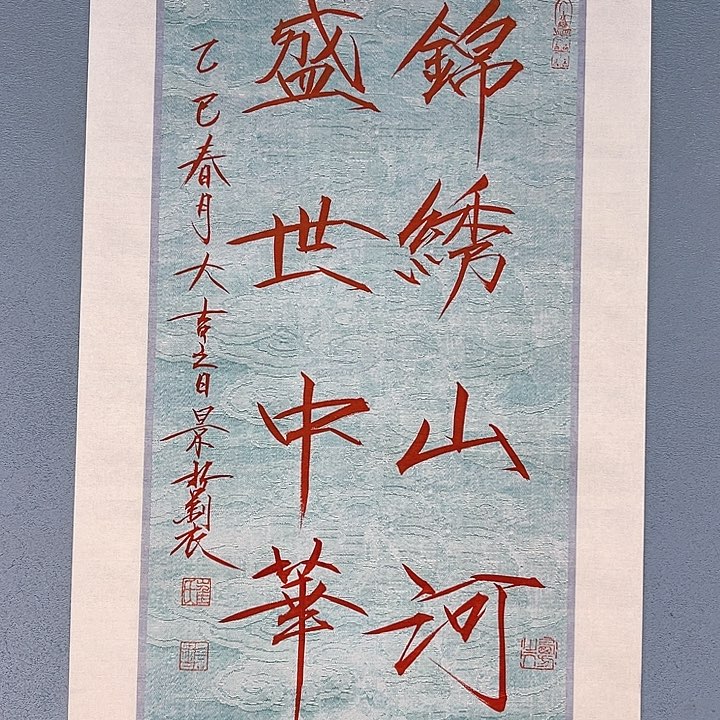 錦綉山河
盛世中華
乙巳春月大吉之日景